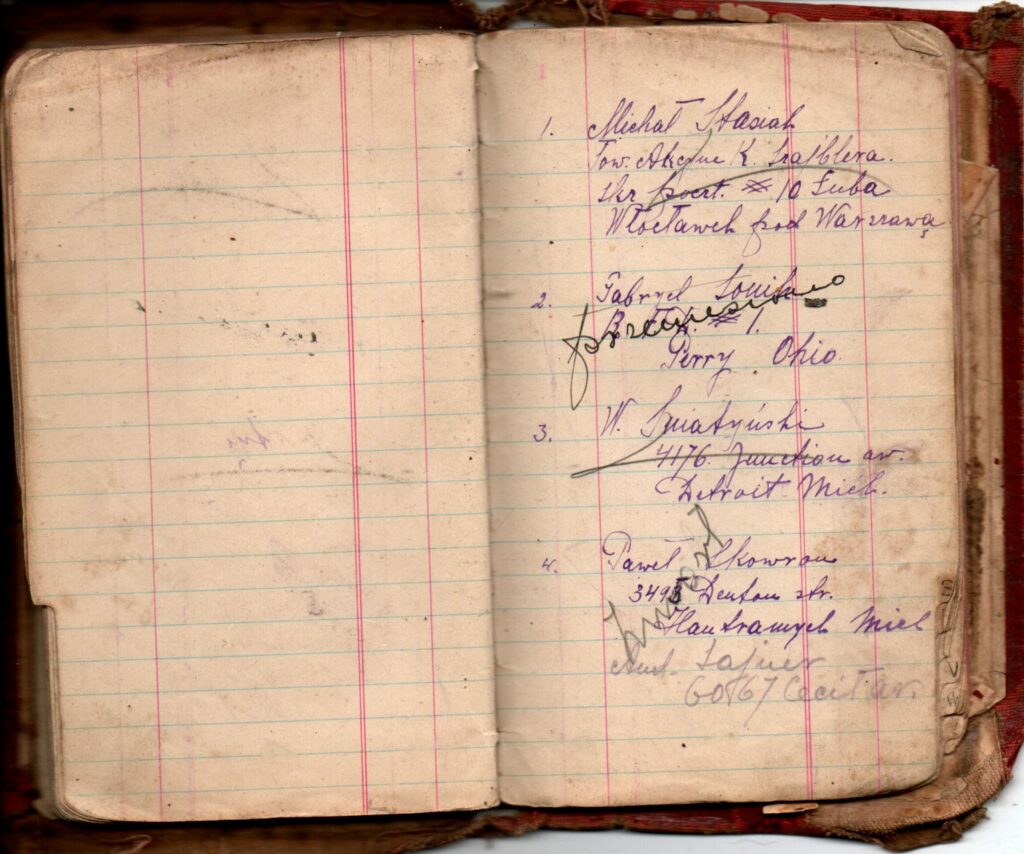 1. Michał Stasiak
Tow. Akcyjne K. Szajblera.
Skr poczt. # 10 Luba
Włocławek pod Warszawą
2. Gabryel
przeniesiono
# 1.
Perry Ohio.
3. W. Kwiatyński
4176. Junction av.
Detroit Mich.
4. Paweł Skowron
3495 Denton str.
Hamtramych Mich
Zmarł
Ant. Lajner
6067 Cecil av.